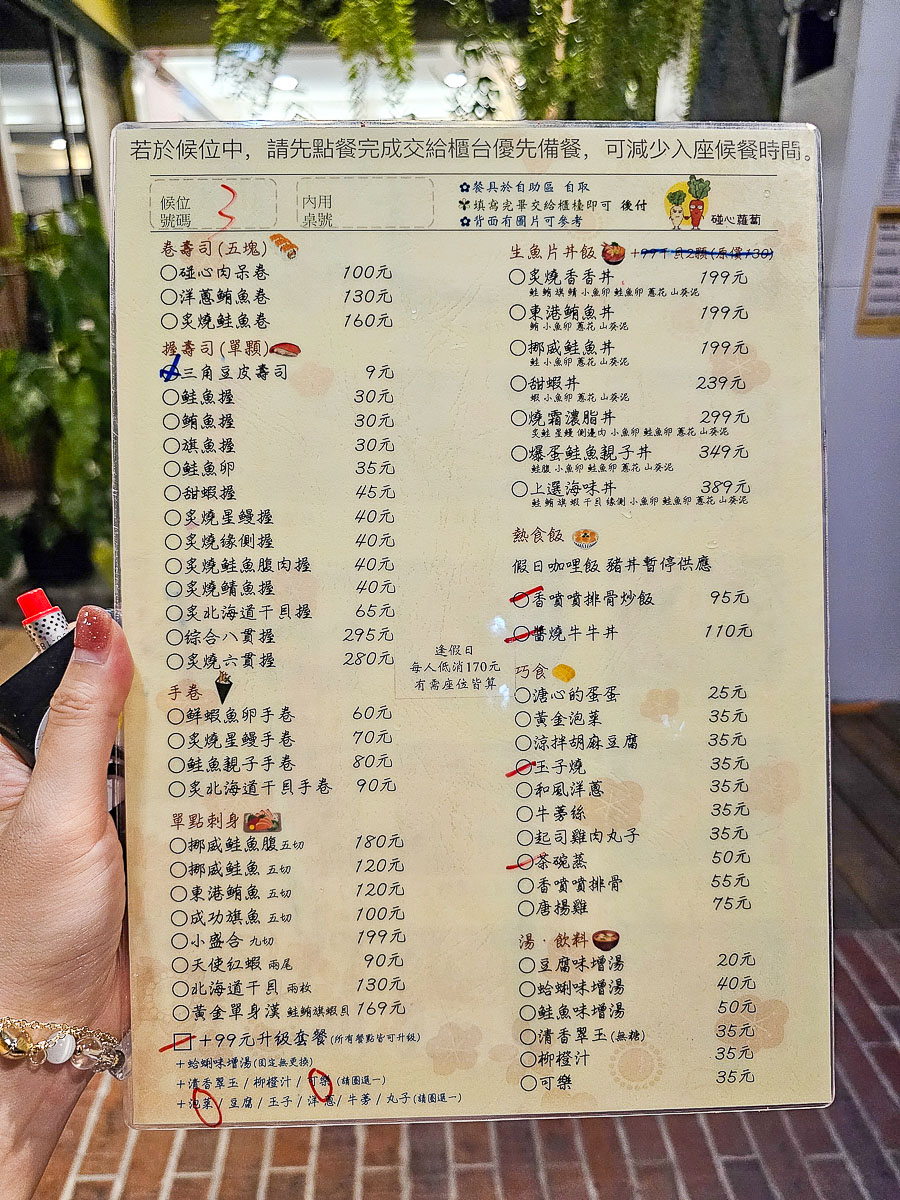 若於候位中，請先點餐完成交給櫃台優先備餐，可減少入座候餐時間。
候位號碼 3
內用桌號
✿餐具於自助區 自取
填寫完畢交給櫃檯即可 後付
✿背面有圖片可參考
碰心蘿蔔
卷壽司(五塊)
○碰心肉呆卷 100元
○洋蔥鮪魚卷 130元
○炙燒鮭魚卷 160元
握壽司(單顆)
○三角豆皮壽司 9元
○鮭魚握 30元
○鮪魚握 30元
○旗魚握 30元
○鮭魚卵 35元
○甜蝦握 45元
○炙燒星鰻握 40元
○炙燒緣側握 40元
○炙燒鮭魚腹肉握 40元
○炙燒鯖魚握 40元
○炙北海道干貝握 65元
○綜合八貫握 295元
○炙燒六貫握 280元
手卷
○鮮蝦魚卵手卷 60元
○炙燒星鰻手卷 70元
○鮭魚親子手卷 80元
○炙北海道干貝手卷 90元
單點刺身
○挪威鮭魚腹 五切 180元
○挪威鮭魚 五切 120元
○東港鮪魚 五切 120元
○成功旗魚 五切 100元
○小盛合 九切 199元
○天使紅蝦 兩尾 90元
○北海道干貝 兩枚 130元
○黃金單身漢 鮭鮪旗蝦貝 169元
□+99元升級套餐(所有餐點皆可升級)
+蛤蜊味增湯(固定無更換)
+清香翠玉 / 柳橙汁 / 可樂 (請圈選一)
+泡菜 / 豆腐 / 玉子 / 洋蔥 / 牛蒡 / 丸子(請圈選一)
逢假日
每人低消170元
有需座位皆算
生魚片丼飯 +99干貝2顆(原價130)
○炙燒香香丼 199元
鮭 鮪 旗 鯖 小魚卵 鮭魚卵 蔥花 山葵泥
○東港鮪魚丼 199元
鮪 小魚卵 蔥花 山葵泥
○挪威鮭魚丼 199元
鮭 小魚卵 蔥花 山葵泥
○甜蝦丼 239元
蝦 小魚卵 蔥花 山葵泥
○燒霜濃脂丼 299元
炙鮭 星鰻 側邊肉 小魚卵 鮭魚卵 蔥花 山葵泥
○爆蛋鮭魚親子丼 349元
鮭腹 小魚卵 鮭魚卵 蔥花 山葵泥
○上選海味丼 389元
鮭 鮪 旗 蝦 干貝 緣側 小魚卵 鮭魚卵 蔥花 山葵泥
熱食飯
假日咖哩飯 豬丼暫停供應
○香噴噴排骨炒飯 95元
○醬燒牛牛丼 110元
巧食
○溏心的蛋蛋 25元
○黃金泡菜 35元
○涼拌胡麻豆腐 35元
○玉子燒 35元
○和風洋蔥 35元
○牛蒡絲 35元
○起司雞肉丸子 35元
○茶碗蒸 50元
○香噴噴排骨 55元
○唐揚雞 75元
湯．飲料
○豆腐味增湯 20元
○蛤蜊味增湯 40元
○鮭魚味增湯 50元
○清香翠玉(無糖) 35元
○柳橙汁 35元
○可樂 35元